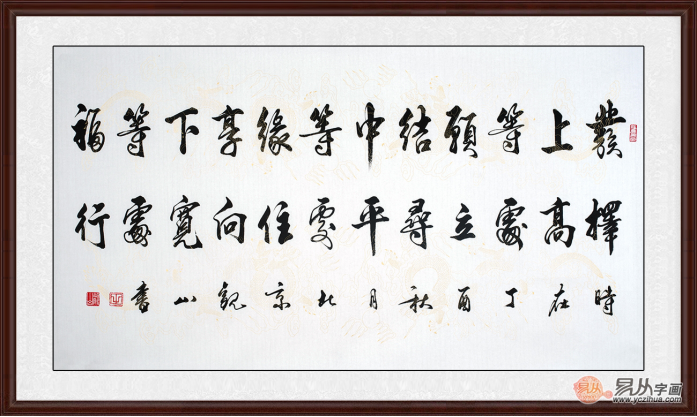 發上等願結中等緣享下等福
擇高處立尋平處住向寬處行
時在丁酉秋月北京觀山書
易从
易从字画
www.yczihua.com